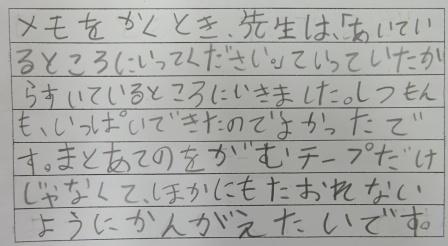 メモをかくとき、先生は、「あいてい
るところにいってください。」ていっていたか
らすいているところにいきました。しつもん
も、いっぱいできたのでよかったで
す。まとあてのをがむテープだけ
じゃなくて、ほかにもたおれない
ようにかんがえたいです。